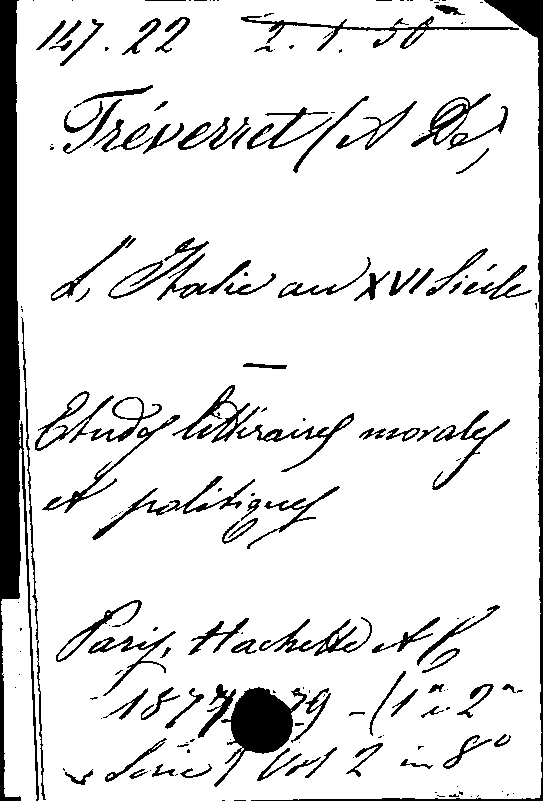 147. 22 2. 1. 50
Tréverret (A De)
L'Italie au XVI Siécle
—
Etudes littéraires morales
et politiques
Paris, Hachette et C
1877 79 - (1ª e 2ª
Serie) Vol 2 in 8º